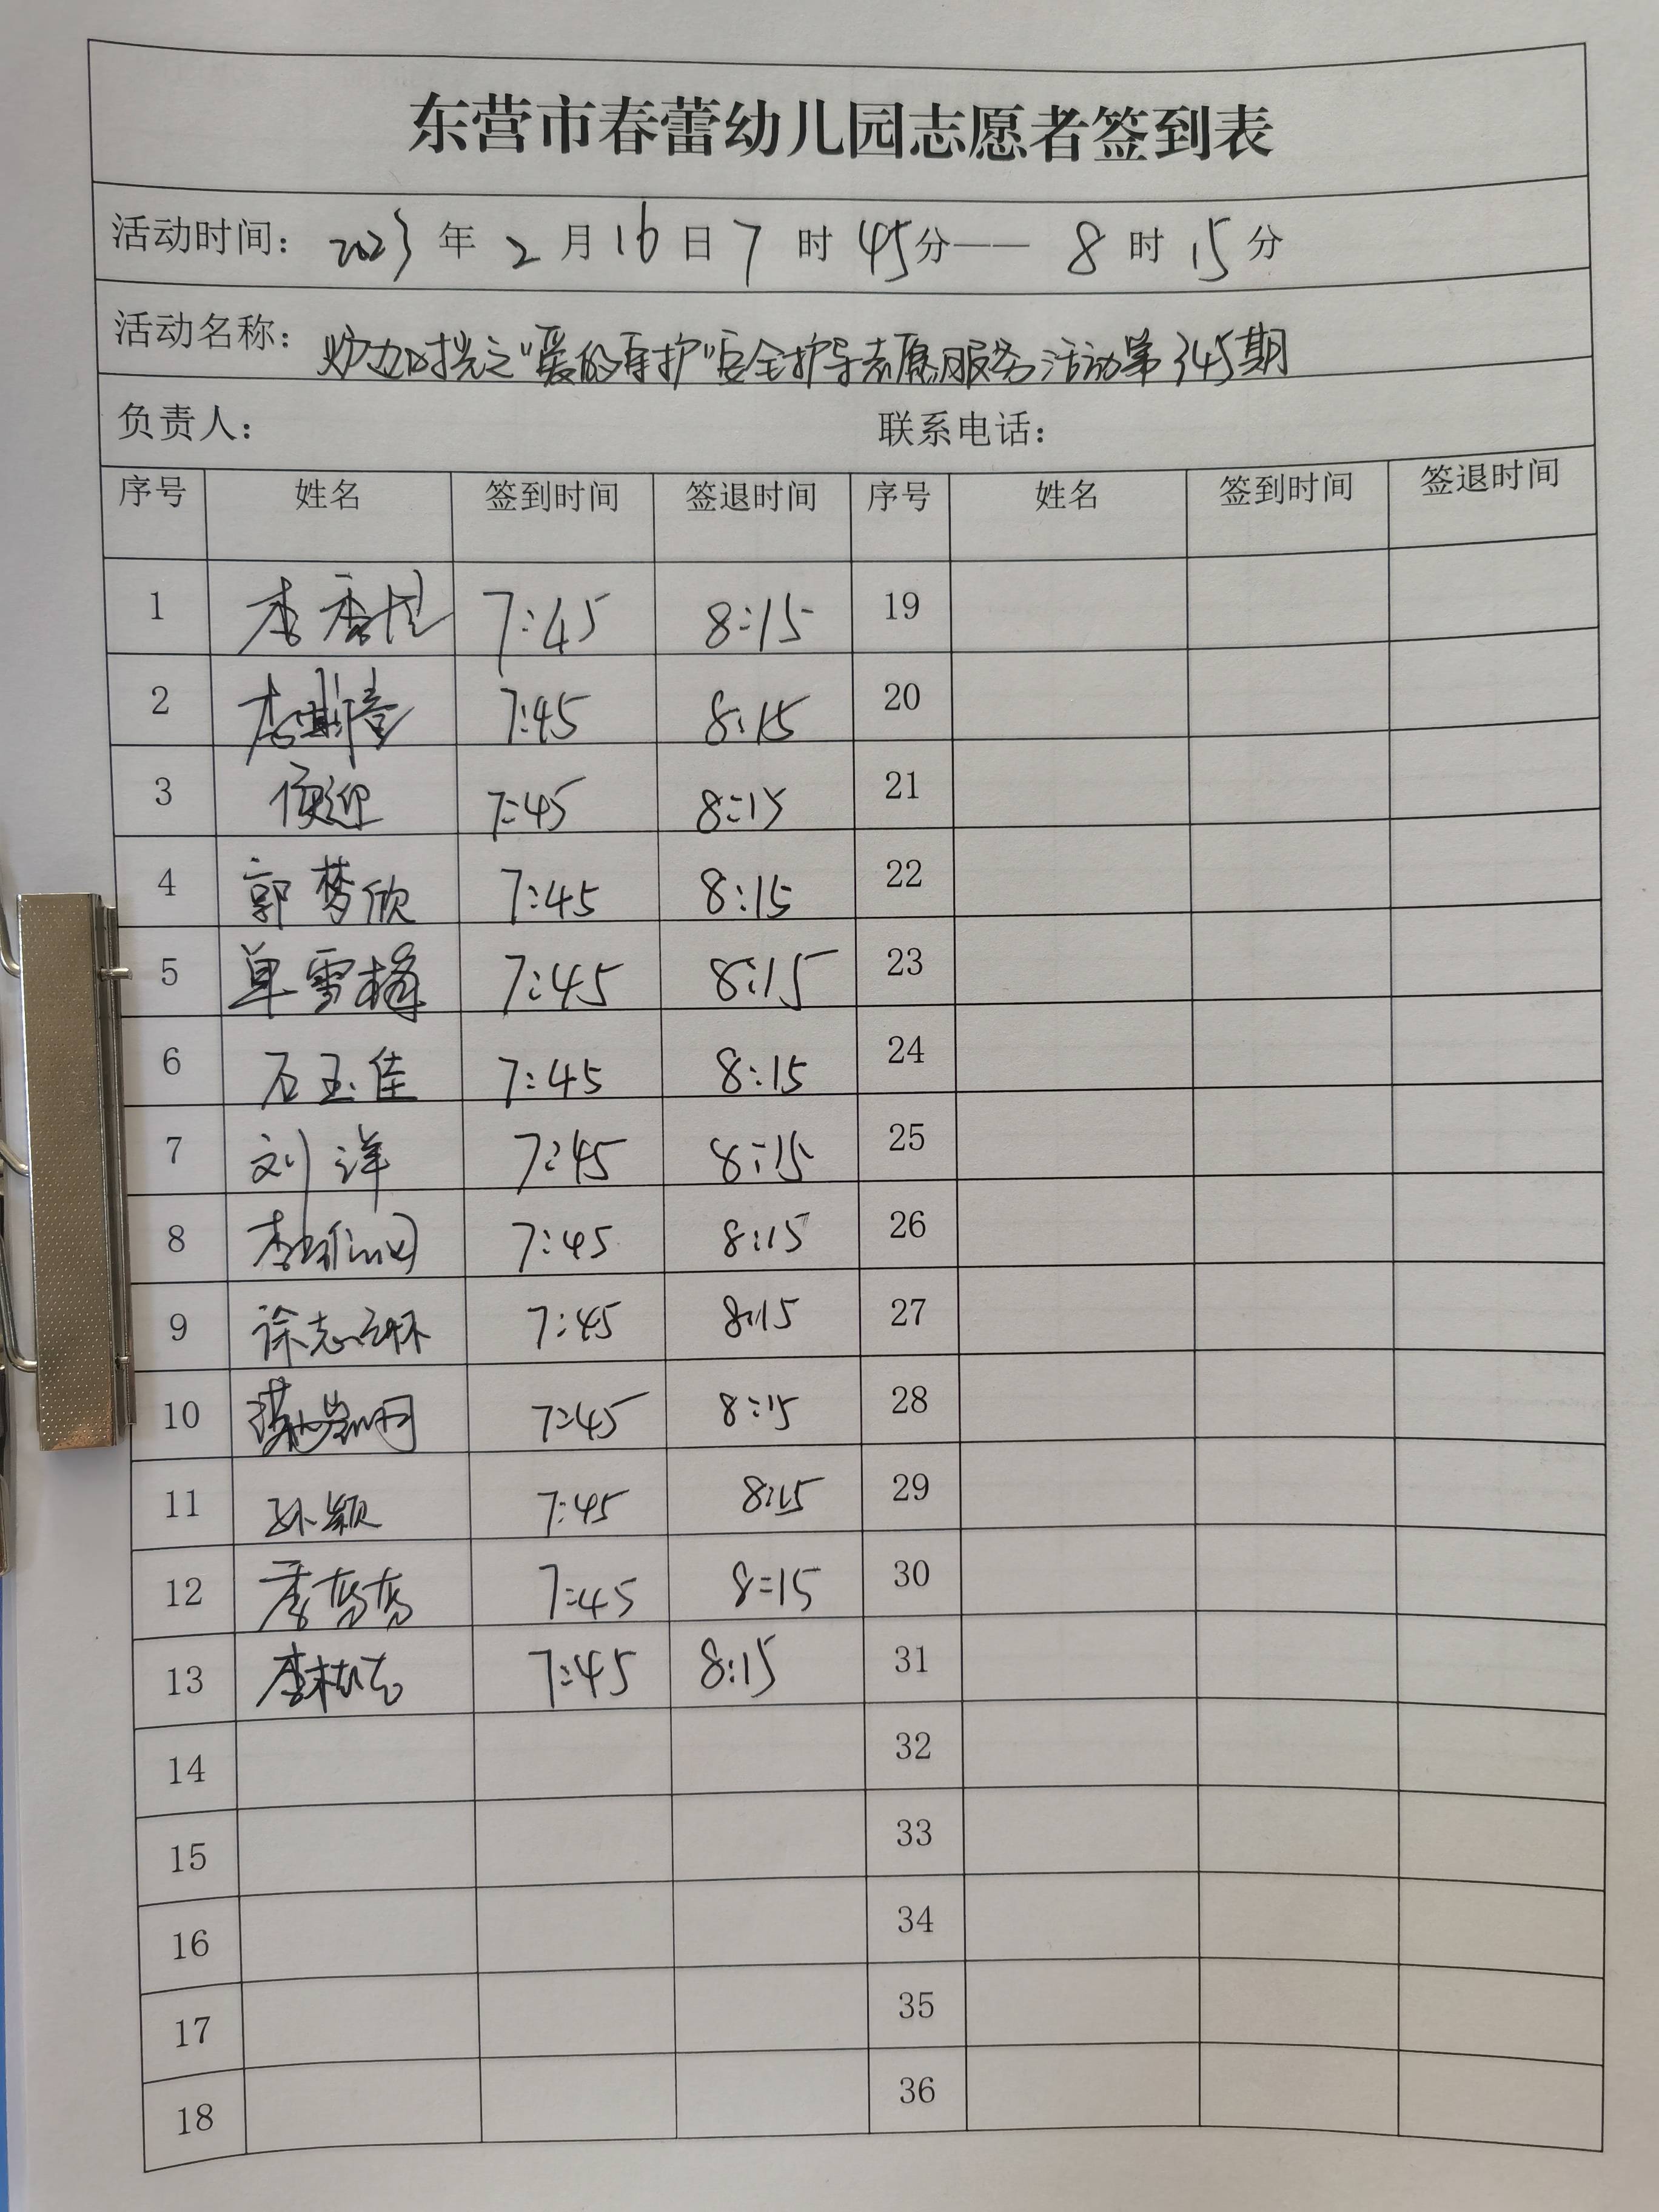 东营市春蕾幼儿园志愿者签到表
活动时间：2023 年 2 月 16 日 7 时 45 分—— 8 时 15 分
活动名称： 之"爱的守护"安全护导志愿服务活动第345期
负责人： 联系电话：
序号 姓名 签到时间 签退时间 序号 姓名 签到时间 签退时间
1 李香 7:45 8:15 19
2 李 7:45 8:15 20
3 迎 7:45 8:15 21
4 郭梦欣 7:45 8:15 22
5 单雪梅 7:45 8:15 23
6 石玉佳 7:45 8:15 24
7 刘洋 7:45 8:15 25
8 李 7:45 8:15 26
9 徐志 7:45 8:15 27
10 7:45 8:15 28
11 孙颖 7:45 8:15 29
12 7:45 8:15 30
13 李 7:45 8:15 31
14 32
15 33
16 34
17 35
18 36